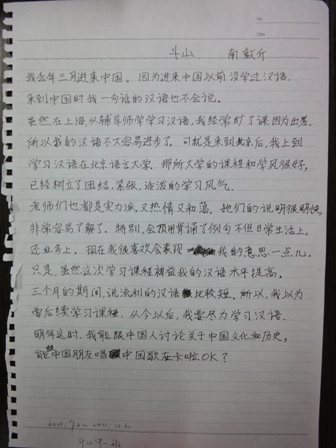 斗山 南敲介
我去年三月进来中国。因为进来中国以前没学过汉语,
来到中国时我一句话的汉语也不会说。
虽然在上海从辅导师学学习汉语,我经常旷了课因为出差.
所以我的汉语不大容易进步了. 可就是来到北京后,我上到
学习汉语在北京语言大学. 那所大学的课程和学风很好,
已经树立了团结、紧张、活泼的学习风气.
老师们也都是实力派,又热情又和蔼. 她们的说明很明快,
非常容易了解了. 特别,会预用背诵了例句不但日常生活上,
还业务上. 现在我很喜欢会表现 我的意思一点儿.
只是,虽然这次学习课程裨益我的汉语水平提高,
三个月的期间,说流利的汉语 比较短. 所以,我以为
需后续学习课程. 从今以后,我要尽力学习汉语.
明年这时,我能跟中国人讨论关于中国文化和历史,
能 中国朋友唱 中国歌在卡啦OK?